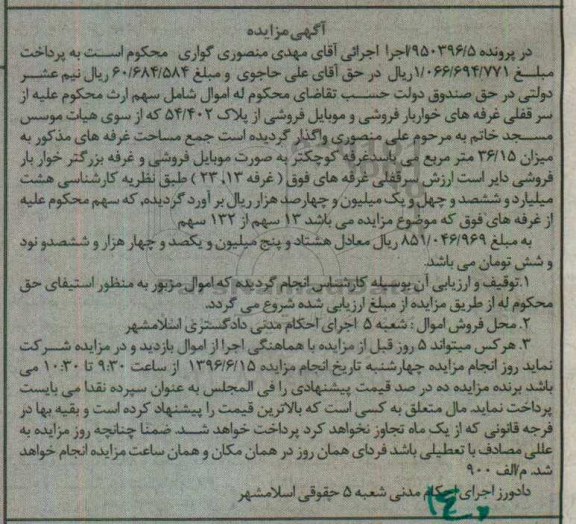 آگهی مزایده
در پرونده ۹۵۰۳۹۶/۵/اجرا اجرائی آقای مهدی منصوری گواری محکوم است به پرداخت
مبلغ ۱/۰۶۶/۶۹۴/۷۷۱ریال در حق آقای علی حاجوی و مبلغ ۶۰/۶۸۴/۵۸۴ ریال نیم عشر
دولتی در حق صندوق دولت حسب تقاضای محکوم له اموال شامل سهم ارث محکوم علیه از
سر قفلی غرفه های خواربار فروشی و موبایل فروشی از پلاک ۵۴/۴۰۲ که از سوی هیات موسس
مسجد خاتم به مرحوم علی منصوری واگذار گردیده است جمع مساحت غرفه های مذکور به
میزان ۳۶/۱۵ متر مربع می باشدغرفه کوچکتر به صورت موبایل فروشی و غرفه بزرگتر خوار بار
فروشی دایر است ارزش سرقفلی غرفه های فوق ( غرفه ۱۳، ۲۳ ) طبق نظریه کارشناسی هشت
میلیارد و ششصد و چهل و یک میلیون و چهارصد هزار ریال بر آورد گردیده, که سهم محکوم علیه
از غرفه های فوق که موضوع مزایده می باشد ۱۳ سهم از ۱۳۲ سهم
به مبلغ ۸۵۱/۰۴۶/۹۶۹ ریال معادل هشتاد و پنج میلیون و یکصد و چهار هزار و ششصدو نود
و شش تومان می باشد.
۱.توقیف و ارزیابی آن بوسیله کارشناس انجام گردیده که اموال مزبور به منظور استیفای حق
محکوم له از طریق مزایده از مبلغ ارزیابی شده شروع می گردد.
۲. محل فروش اموال : شعبه ۵ اجرای احکام مدنی دادگستری اسلامشهر
۳. هر کس میتواند ۵ روز قبل از مزایده با هماهنگی اجرا از اموال بازدید و در مزایده شرکت
نماید روز انجام مزایده چهارشنبه تاریخ انجام مزایده ۱۳۹۶/۶/۱۵ از ساعت ۹:۳۰ تا ۱۰:۳۰ می
باشد برنده مزایده ده در صد قیمت پیشنهادی را فی المجلس به عنوان سپرده نقدا می بایست
پرداخت نماید. مال متعلق به کسی است که بالاترین قیمت را پیشنهاد کرده است و بقیه بها در
فرجه قانونی که از یک ماه تجاوز نخواهد کرد پرداخت خواهد شد. ضمنا چنانچه روز مزایده به
عللی مصادف با تعطیلی باشد فردای همان روز در همان مکان و همان ساعت مزایده انجام خواهد
شد. م/الف ۹۰۰
دادورز اجرای احکام مدنی شعبه ۵ حقوقی اسلامشهر